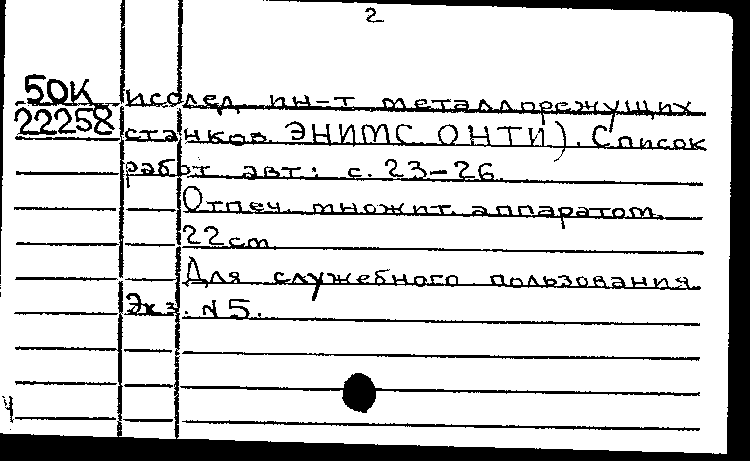 2
50К исслед. ин-т металлорежущих
22258 станков ЭНИМС ОНТИ). Список
работ авт: с. 23-26.
Отпеч. множит. аппаратом.
22 cm.
Для служебного пользования
Экз. N 5.